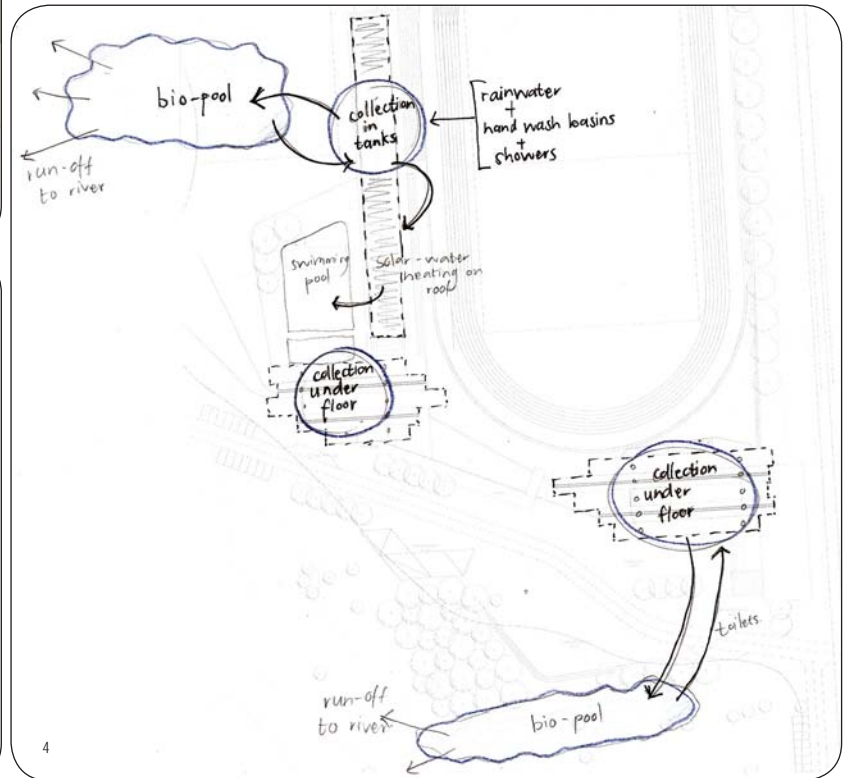 bio-pool
collection
in
tanks
rainwater
+
hand wash basins
+
showers
run-off
to river
swimming
pool
solar-water
heating on
roof
collection
under
floor
collection
under
floor
toilets
run-off
to river
bio-pool
4